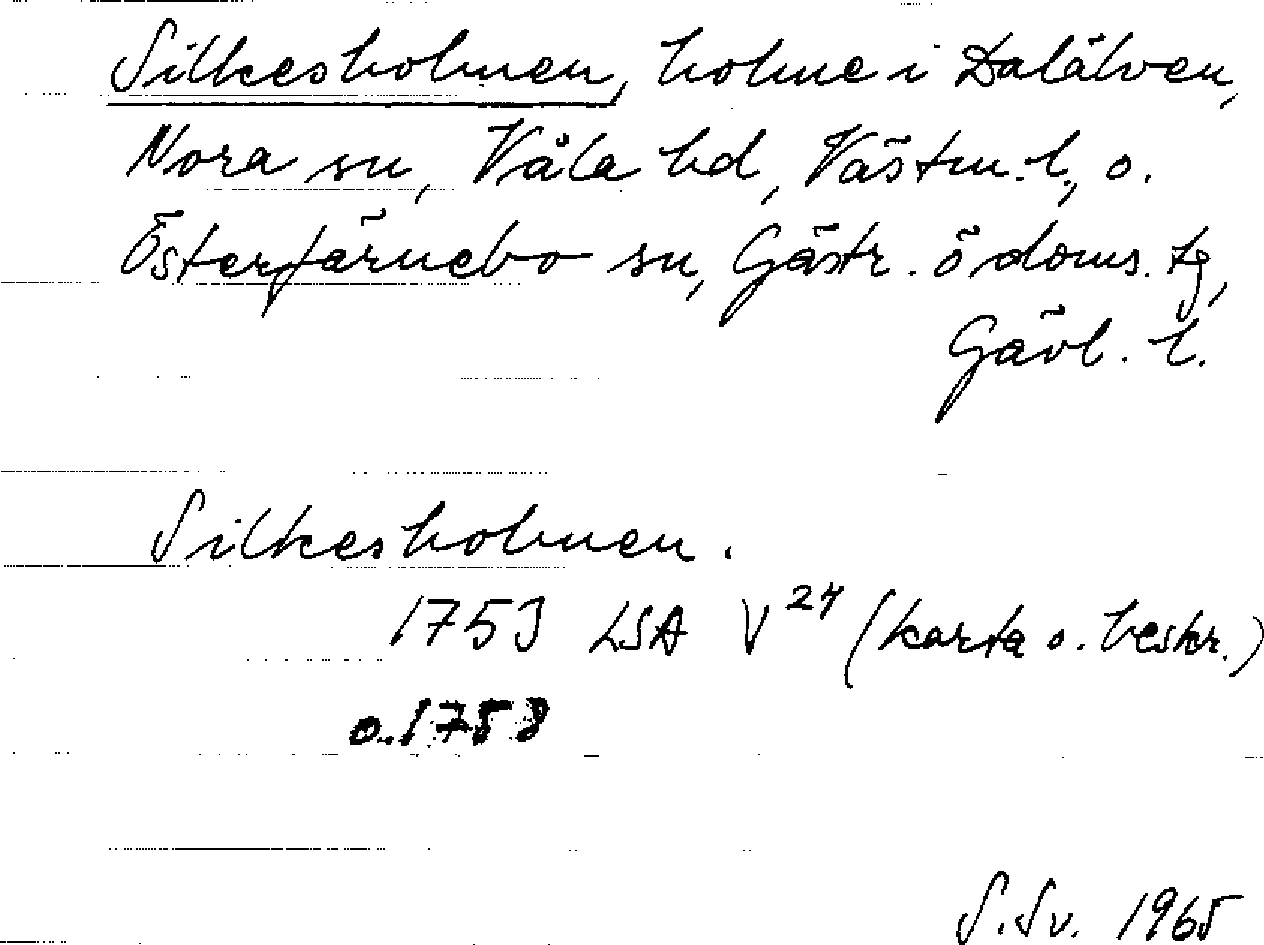 Silkesholmen, holme i Dalälven,
Nora sn, Våla hd, Västm. l., o.
Österfärnebo sn, Gästr. ö doms. tg,
Gävl. l.
Silkesholmen.
1753 LSA V 24 (karta o. beskr.)
o. 1758
S. Sv. 1965